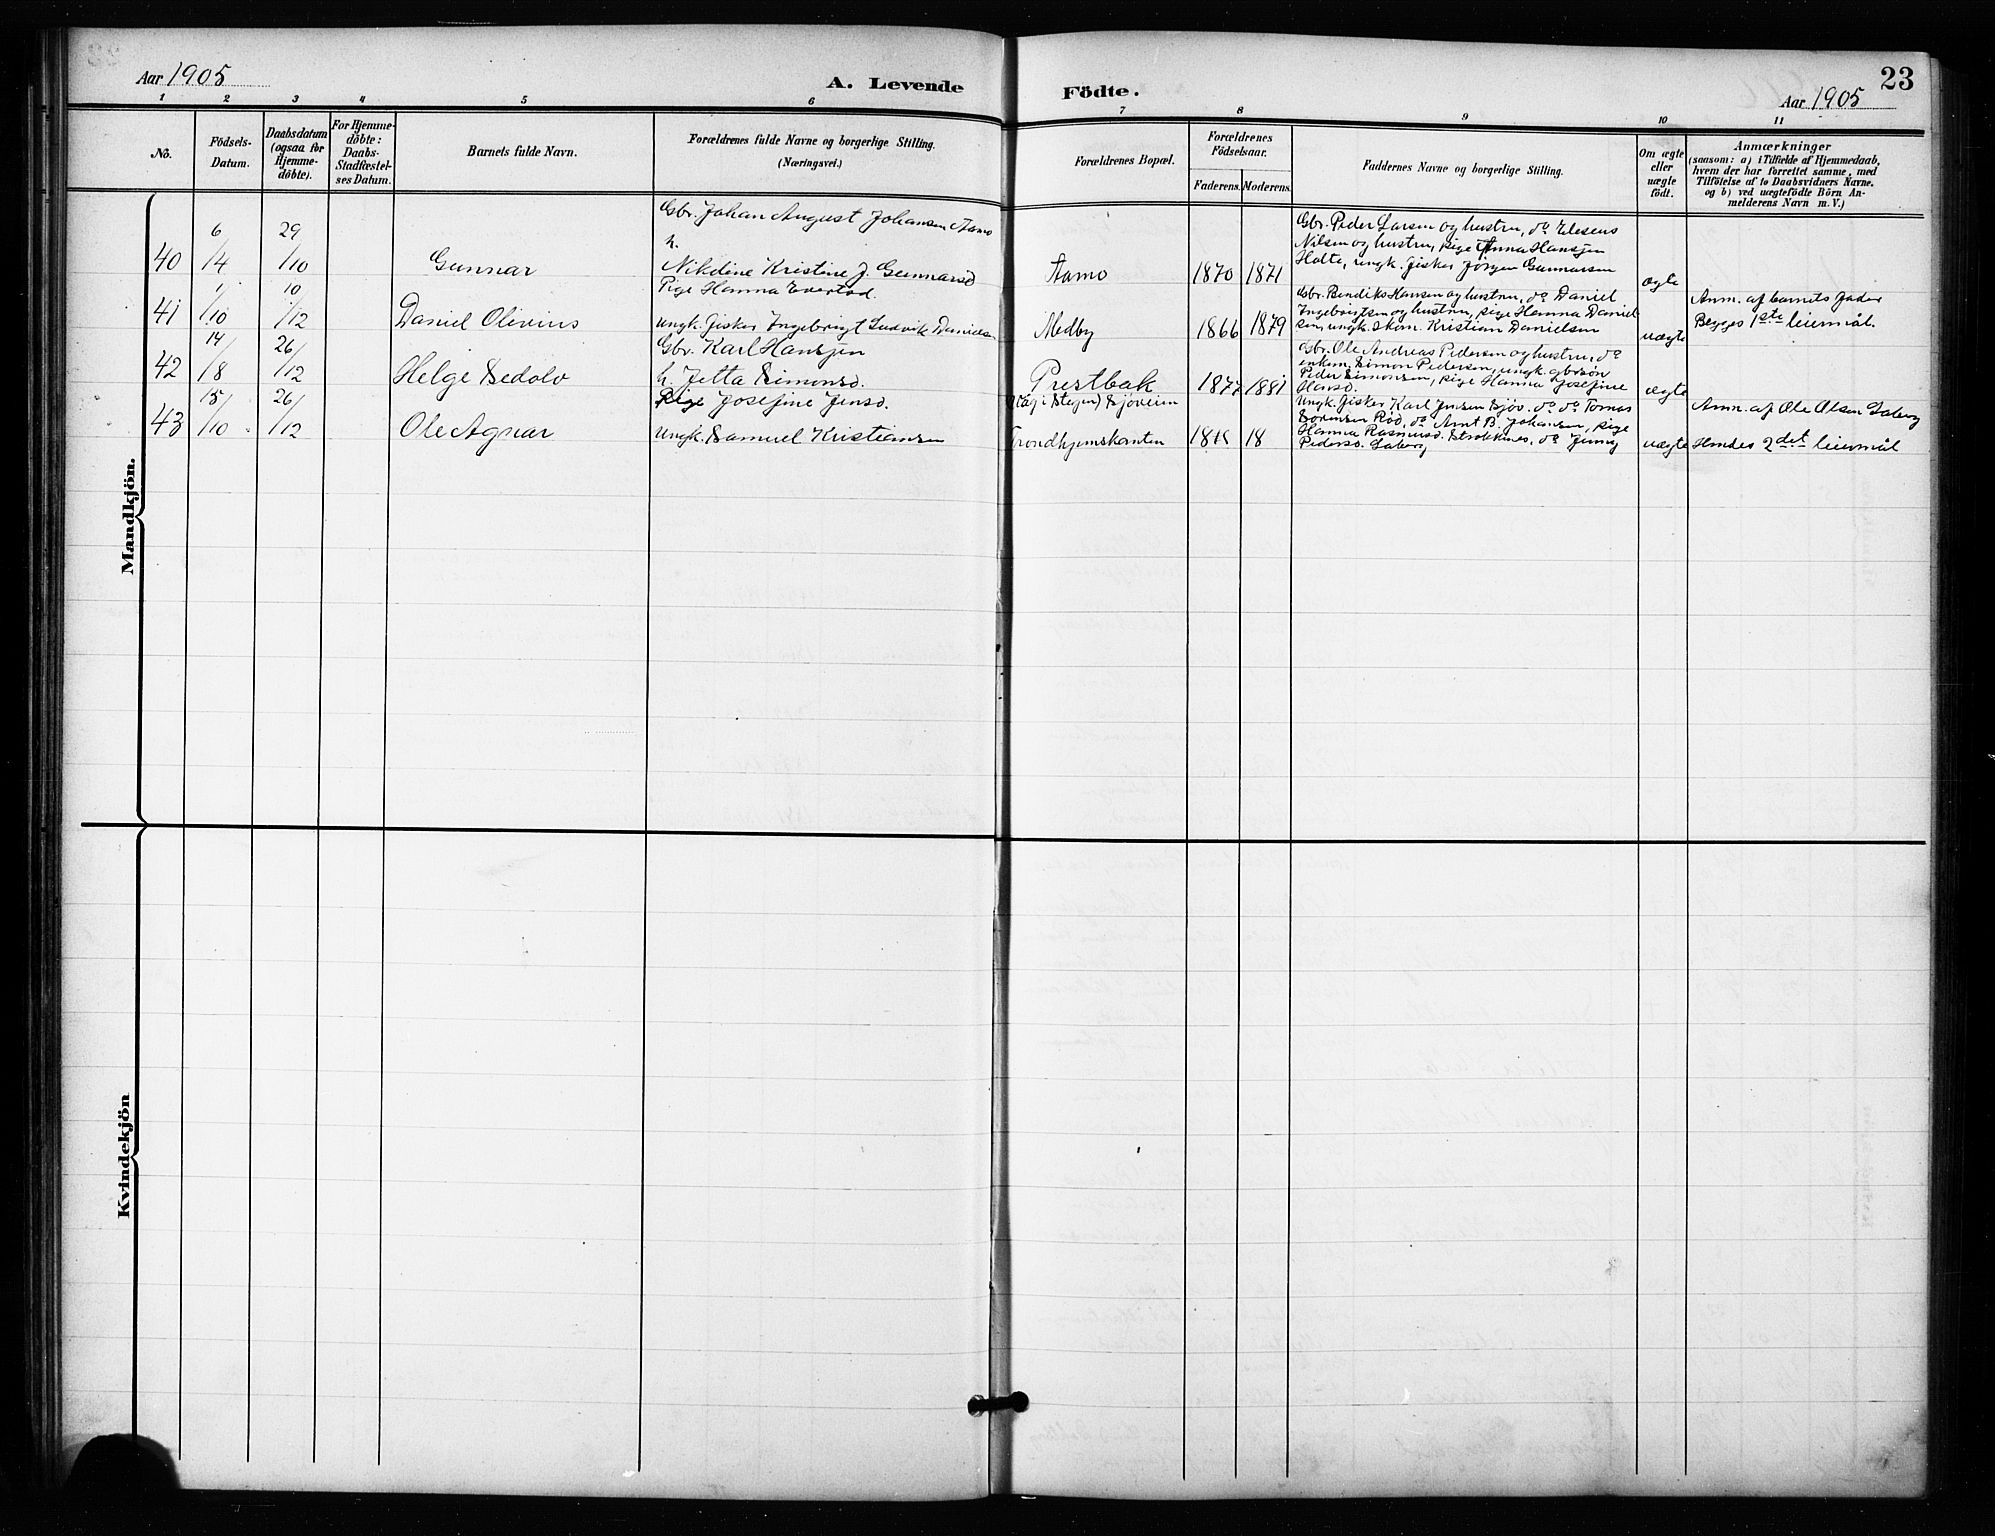 Aar 1905
A. Levende
Födte.
23
Aar 1905
1 2 3 4 5 6 7 8 9 10 11
No.
Födsels-
Datum.
Daabsdatum
(ogsaa for
Hjemme-
döbte).
For Hjemme-
döbte:
Daabs-
Stadfæstel-
ses Datum.
Barnets fulde Navn.
Forældrenes fulde Navne og borgerlige Stilling.
(Næringsvei.)
Forældrenes Bopæl.
Forældrenes
Födselsaar.
Faderens. Moderens.
Faddernes Navne og borgerlige Stilling.
Om ægte
eller
uægte
födt.
Anmærkninger
(saasom: a) i Tilfælde af Hjemmedaab,
hvem der har forrettet samme, med
Tilföielse af to Daabsvidners Navne.
og b) ved uægtefödte Börn An-
melderens Navn m. V.)
Mandkjön.
40
6/4
29/10
Gunnar
Gbr. Johan August Johansen Aamo
h.
Nikdine Kristine J. Gunnarsd
Aamo
1870
1871
Gbr. Peder Larsen og hustru, do Eleseus
Nilsen og hustru, pige Anna Hansjen
Holte, ungk. fisker Jörgen Gunnarsen
ægte
41
1/10
10/12
Daniel Olivius
Pige Hanna Evertsd.
Ungk. fisker Ingebrigt Ludvik Daniels.
Medby
1866
1879
Gbr. Bendiks Hansen og hustru, do Daniel
Ingebrigtsen og hustru, pige Hanna Daniel
sen, ungk. skom. Kristian Danielsen
uægte
Anm. af barnets fader
Begges 1ste leiermål.
42
14/8
26/12
Helge Sedolv
Gbr. Karl Hansjen
h. Jetta Simonsd.
Prestbak
1877
1881
Gbr. Ole Andreas Pedersen og hustru, do
enkem. Simon Pedersen, ungk. gbrsön
Peder Simonsen, pige Hanna Josefine
Hansd.
ægte
43
15/10
26/12
Ole Agnar
Pige Josefine Jensd.
Ungk. Samuel Kristiansen
(Våg i Stegen) Sjöveien
Trondhjemskanten
18
Ungk. fisker Karl Jensen Sjöv. do do Tornas
Sörensen Röd, do Arnt B. Johansen, pige
Hanna Rasmusd. Strokknes, do Jenny
Pedersd. Laberg
uægte
Anm. af Ole Olsen Laberg
Hendes 2det leiermål
Kvindekjön